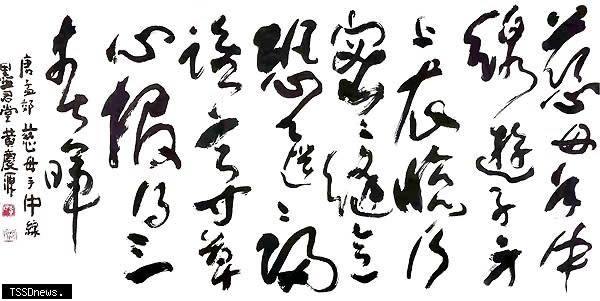 慈母手中
線遊子身
上衣臨行
密〻縫意
恐遲〻歸
誰言寸草
心報得三
春暉
唐孟郊 慈母手中線
堂 黃慶
TSSDnews.